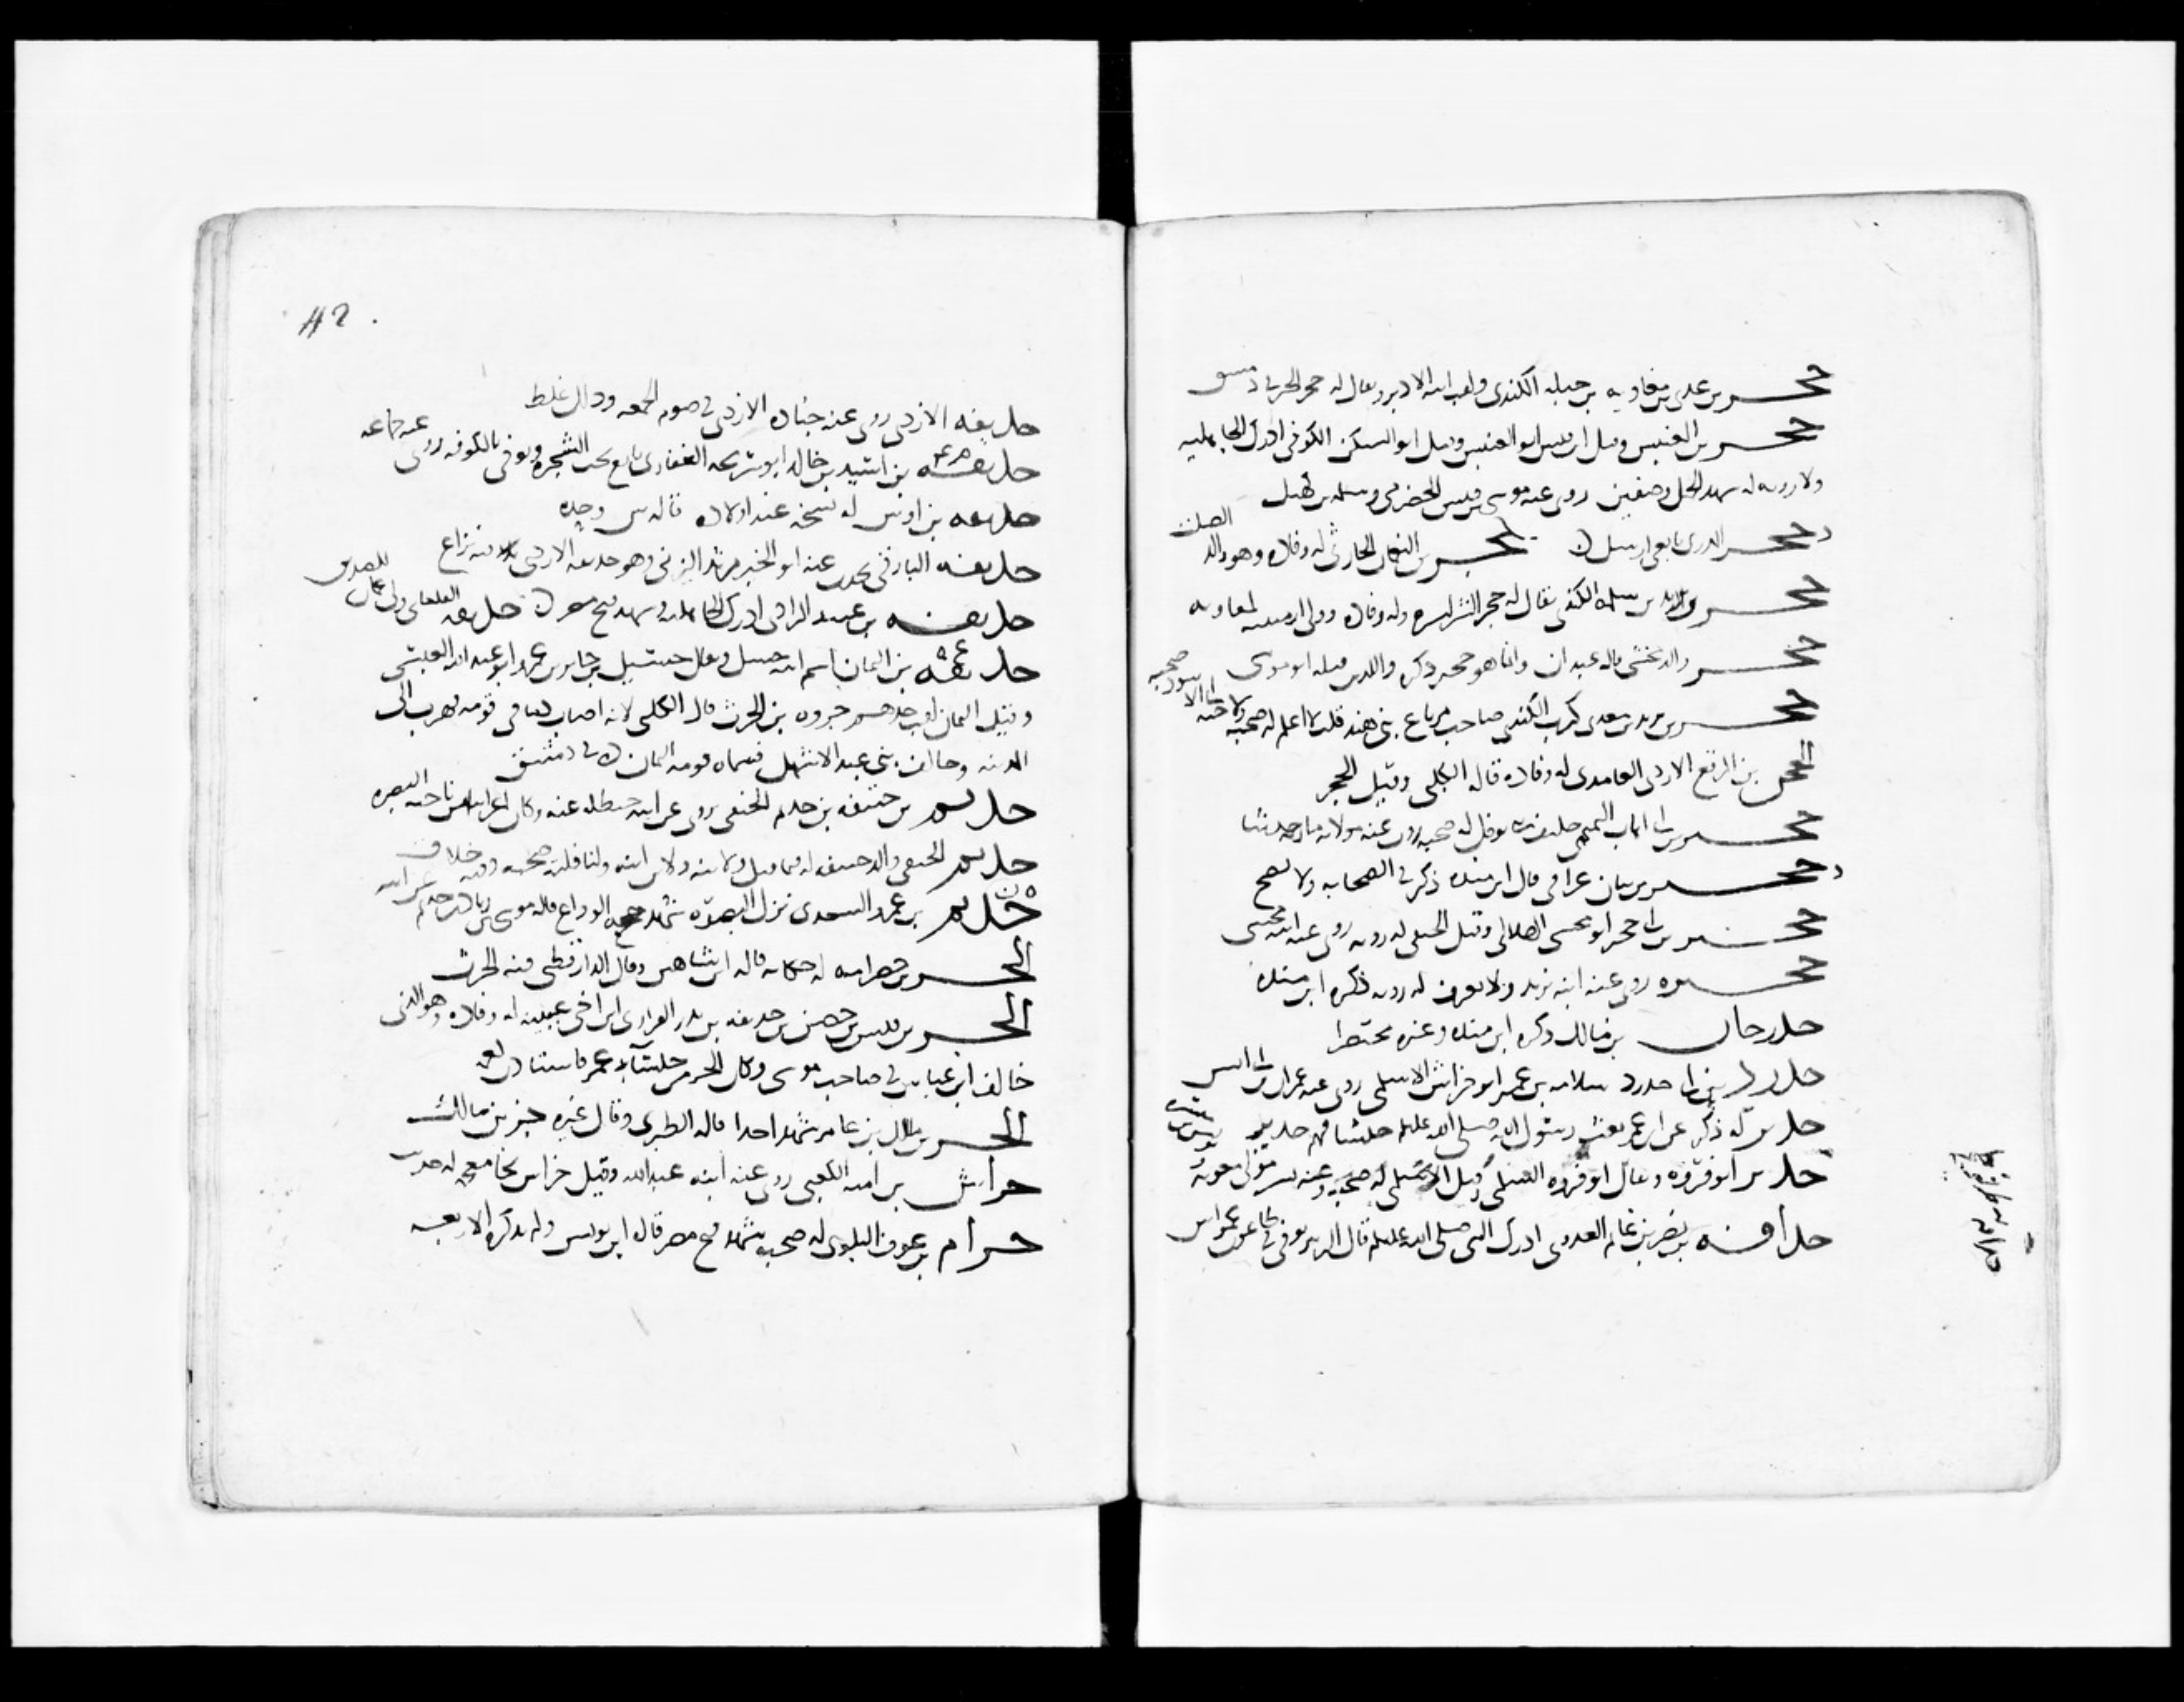 حجر بن عدي بن معاويه بن جبله الكندي ولقب ابيه الادبر ويقال له حجر الخير
حجر بن العنبس وقيل ابن قيس ابو العنبس وقيل ابو السكن الكوفي ادرك الجاهليه
ولا رويه له شهد الجمل وصفين روى عنه موسى بن قيس الحضرمي وسلمه بن كهيل
حجر المدري تابعي ارسل حجر بن النعمان الحارثي له وفاده وهو والد الصلت
حجر بن يزيد بن سلمه الكندي يقال له حجر الشر لشره وله وفاده وولي ارمينيه لمعاويه
حجر والد مخشي قاله عبدان وانما هو حجير ذكره والذي قبله ابو موسى
حجر بن يزيد بن معدي كرب الكندي صاحب مرباع بني هند قلت لا اعلم له صحبه ولا لاخيه ابي الاسود صحبه
الحجن بن المرقع الازدي الغامدي له وفاده قاله الكلبي وقيل الحجر
حجير بن ابي اهاب التميمي حليف بني نوفل له صحبه روت عنه مولاته ماويه حديثا
حجير بن بيان عراقي قال ابن منده ذكر في الصحابه ولا يصح
حجير بن ابي حجير ابو مخشي الهلالي وقيل الحنفي له رويه روى عنه ابنه مخشي
حجيره روى عنه ابنه يزيد ولا يعرف له رويه ذكره ابن منده
حدرجان بن مالك ذكره ابن منده وغيره مختصرا
حدرد بن ابي حدرد سلامه بن عمير ابو خراش الاسلمي روى عنه عمران بن ابي انس
حدير له ذكر عن ابن عمر بعث رسول الله صلى الله عليه وسلم جيشا فيهم حدير
حدير ابو فوزه ويقال ابو فروه السلمي وقيل الاسلمي له صحبه وعنه بشير مولى معويه
حذافه بن نصر بن غانم العدوي ادرك النبي صلى الله عليه وسلم قال الزبير توفي في طاعون عمواس
حذيفه الازدي روى عنه جناده الازدي في صوم الجمعه وذلك غلط
حذيفه بن اسيد بن خالد ابو سريحه الغفاري بايع تحت الشجره وتوفي بالكوفه روى عنه جماعه
حذيفه بن اوس له نسخه عند اولاده قاله س وحده
حذيفه البارقي يحدث عنه ابو الخير مرثد اليزني وهو حذيفه الازدي فيه نزاع
حذيفه بن عبيد المرادي ادرك الجاهليه وشهد فتح مصر حذيفه القلعاني ولي عمان للصديق
حذيفه بن اليمان اسم ابيه حسل ويقال حسيل بن جابر بن عمرو ابو عبد الله العبسي
وقيل اليمان لقب جدهم جروه بن الحرث قال الكلبي لانه اصاب دما في قومه فهرب الى
المدينه وحالف بني عبد الاشهل فسماه قومه اليمان
حذيم بن حنيفه بن حذيم الحنفي روى عن ابيه حنظله عنه وكان اعرابيا من ناحيه البصره
حذيم الحنفي والد حنيفه له فيما قيل ولابنه ولابن ابنه ولنافلته صحبه وفيه خلاف
حذيم بن عمرو السعدي نزل البصره شهد حجه الوداع قاله موسى بن زياد بن حذيم عن ابيه
الحر بن خضرامه له حكايه قاله ابن شاهين وقال الدارقطني فيه الحرث
الحر بن قيس بن حصن بن حذيفه بن بدر الفزاري ابن اخي عيينه له وفاده وهو الذي
خالف ابن عباس في صاحب موسى وكان الحر من جلساء عمر فاستاذن لعمه
الحر بن مالك بن عامر شهد احدا قاله الطبري وقال غيره جزء بن مالك
حراش بن اميه الكعبي روى عنه ابنه عبد الله وقيل خراش بخا معجمه له حديث
حرام بن عوف البلوي له صحبه شهد فتح مصر قال ابن يونس ولم يذكره الاربعه